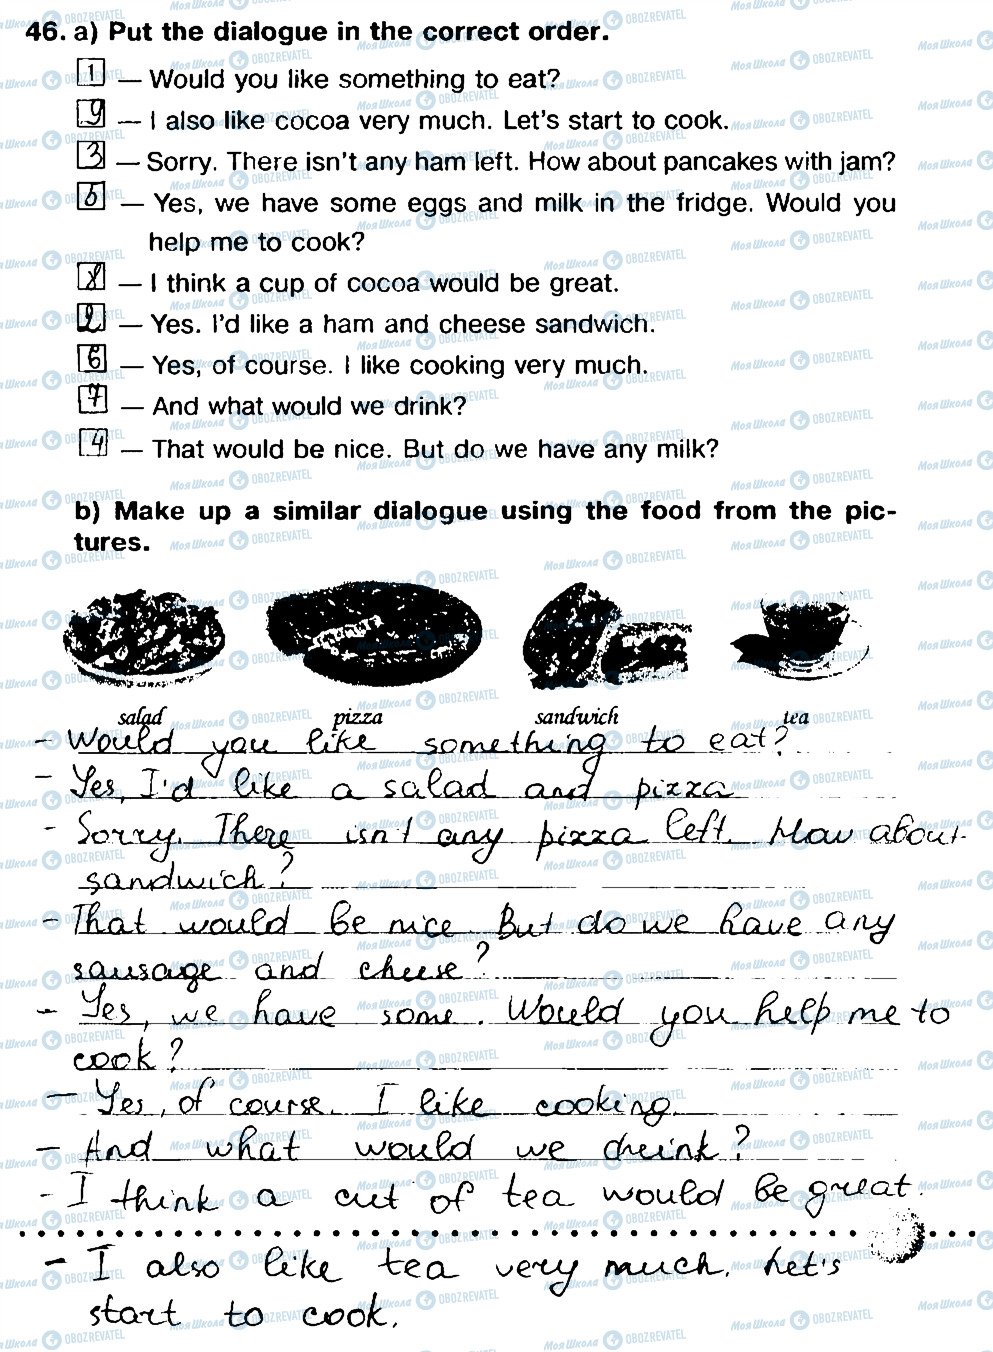 46. a) Put the dialogue in the correct order.
1 — Would you like something to eat?
9 — I also like cocoa very much. Let's start to cook.
3 — Sorry. There isn't any ham left. How about pancakes with jam?
5 — Yes, we have some eggs and milk in the fridge. Would you
help me to cook?
8 — I think a cup of cocoa would be great.
2 — Yes. I'd like a ham and cheese sandwich.
6 — Yes, of course. I like cooking very much.
7 — And what would we drink?
4 — That would be nice. But do we have any milk?
b) Make up a similar dialogue using the food from the pic-
tures.
salad pizza sandwich tea
- Would you like something to eat?
- Yes, I'd like a salad and pizza
- Sorry. There isn't any pizza left. How about
sandwich?
- That would be nice. But do we have any
sausage and cheese?
- Yes, we have some. Would you help me to
cook?
- Yes, of course. I like cooking.
- And what would we drink?
- I think a cut of tea would be great.
- I also like tea very much. Let's
start to cook.
МояШкола OBOZREVATEL